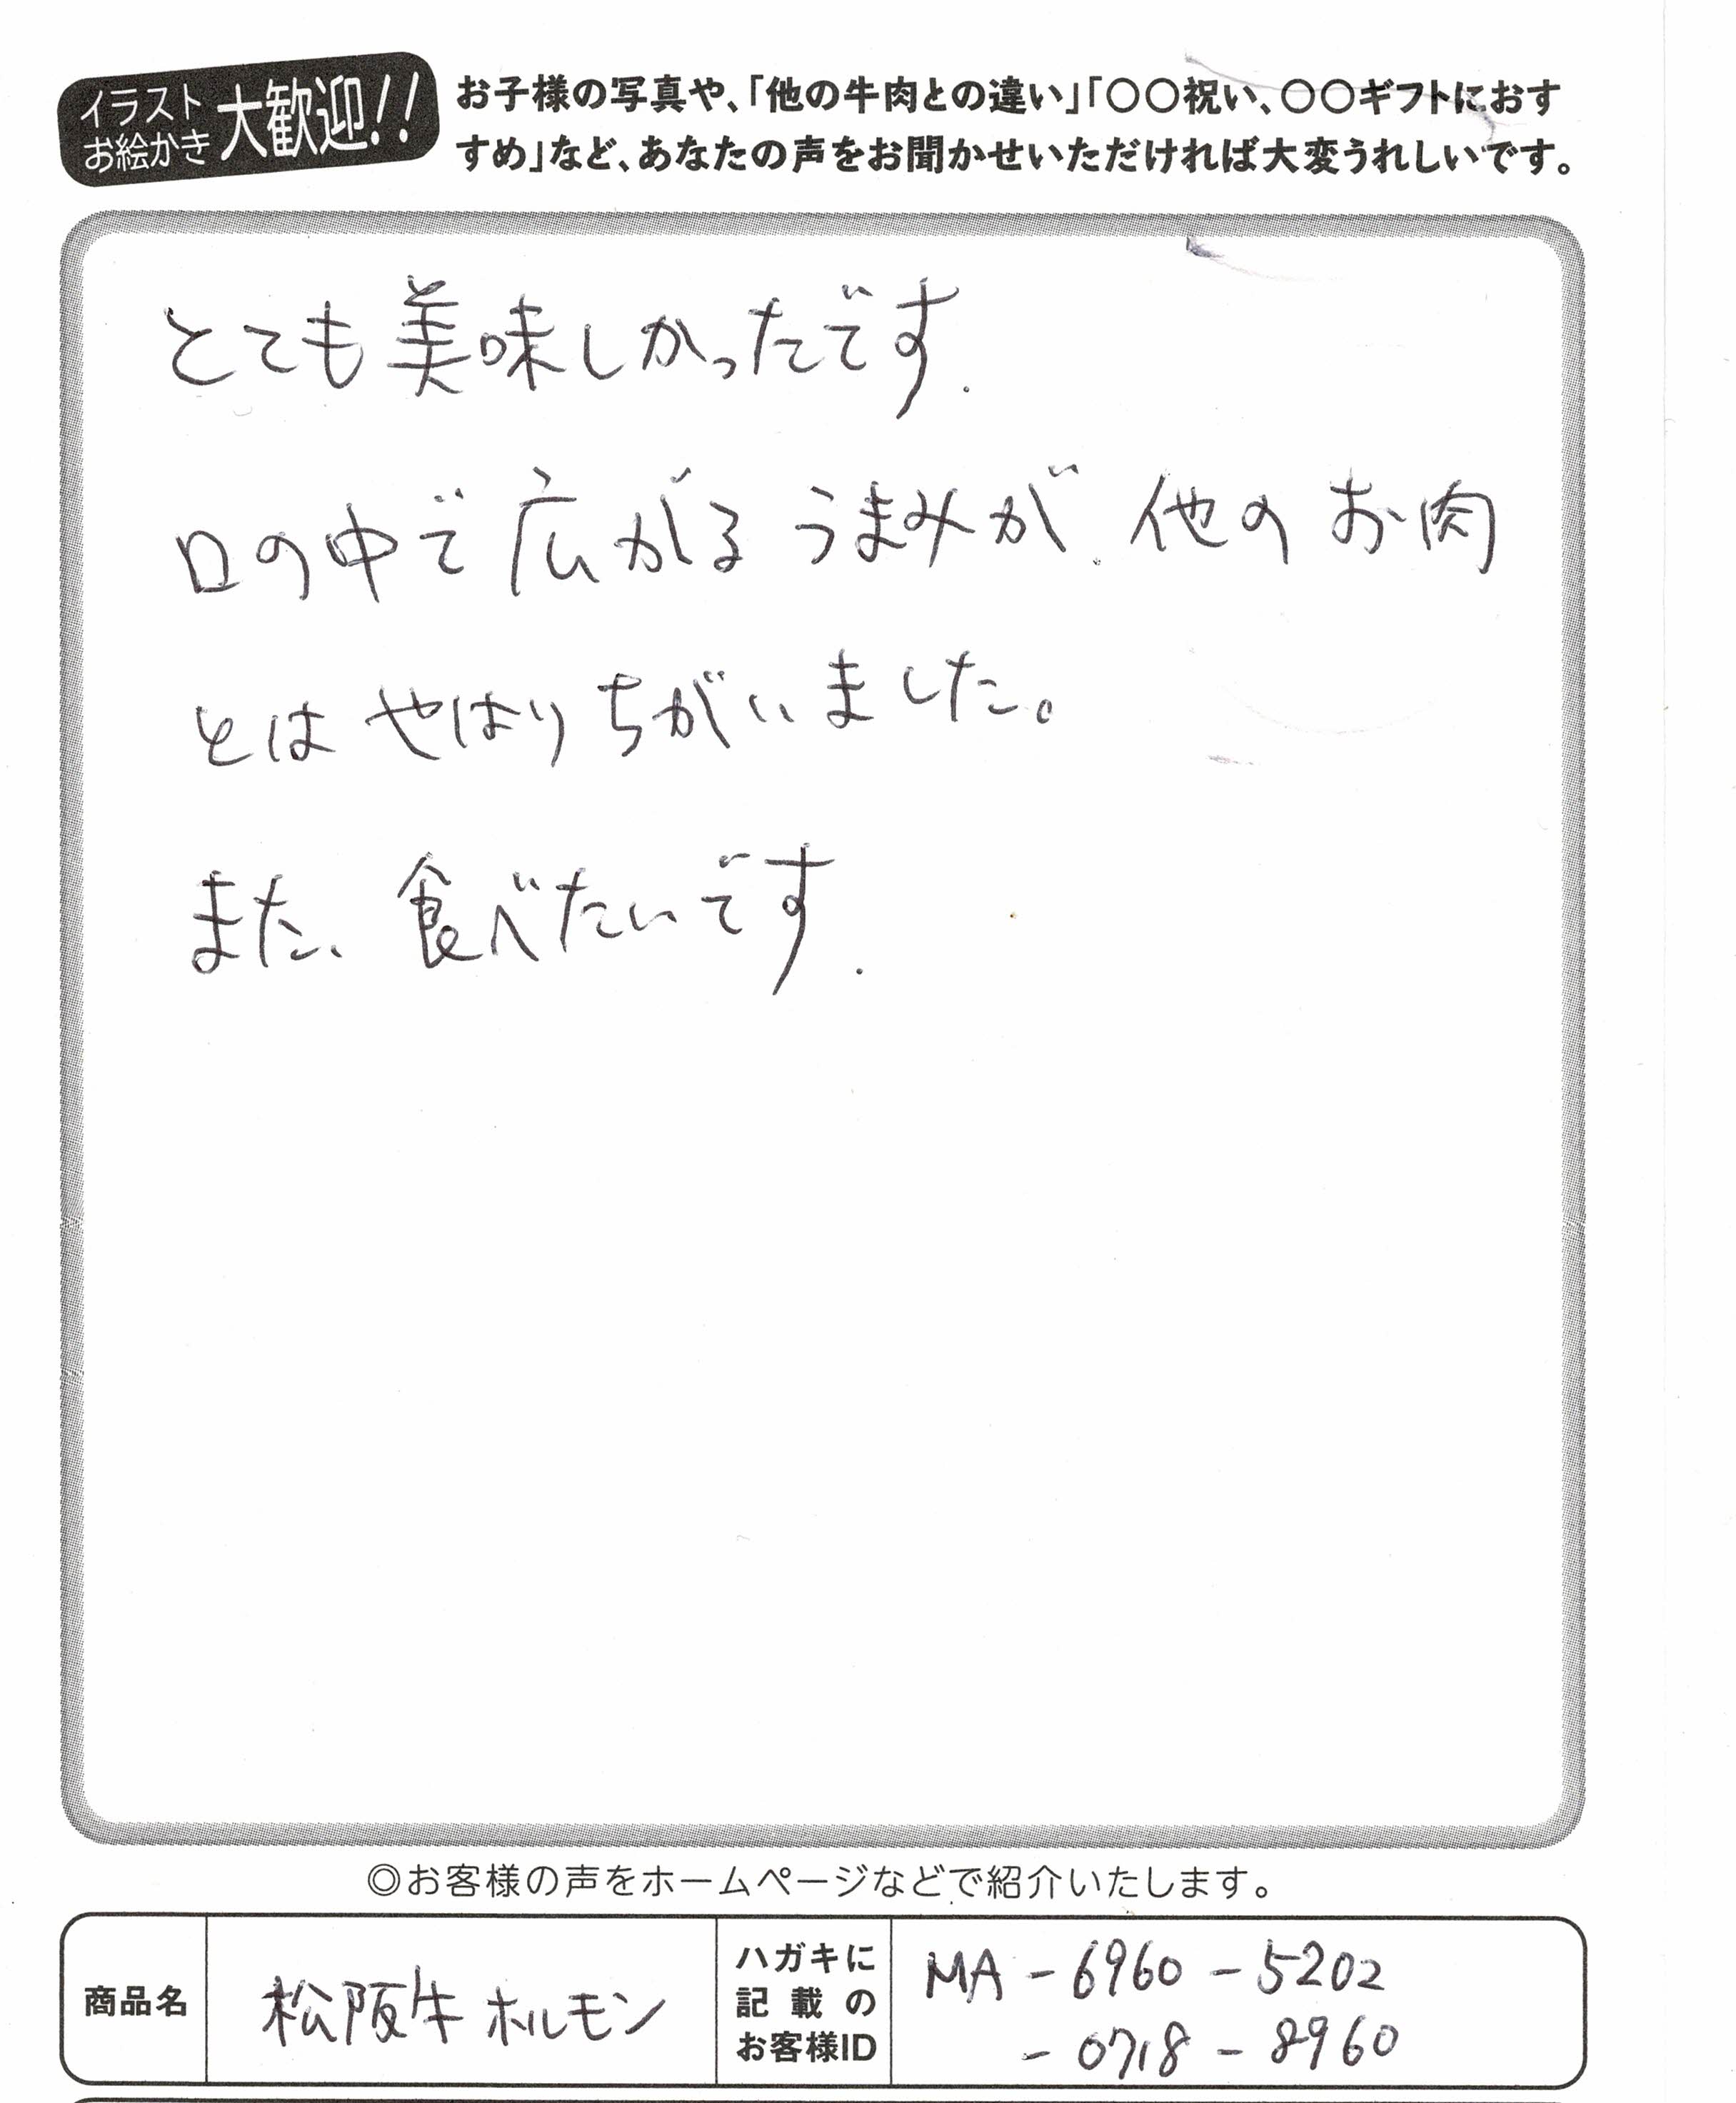 イラスト
お絵かき
大歓迎!!
お子様の写真や、「他の牛肉との違い」「〇〇祝い、〇〇ギフトにおす
すめ」など、あなたの声をお聞かせいただければ大変うれしいです。
とても美味しかったです.
口の中で広がるうまみが、他のお肉
とはやはりちがいました。
また、食べたいです.
◎お客様の声をホームページなどで紹介いたします。
商品名
松阪牛ホルモン
ハガキに
記載の
お客様ID
MA-6960-5202
-0718-8960